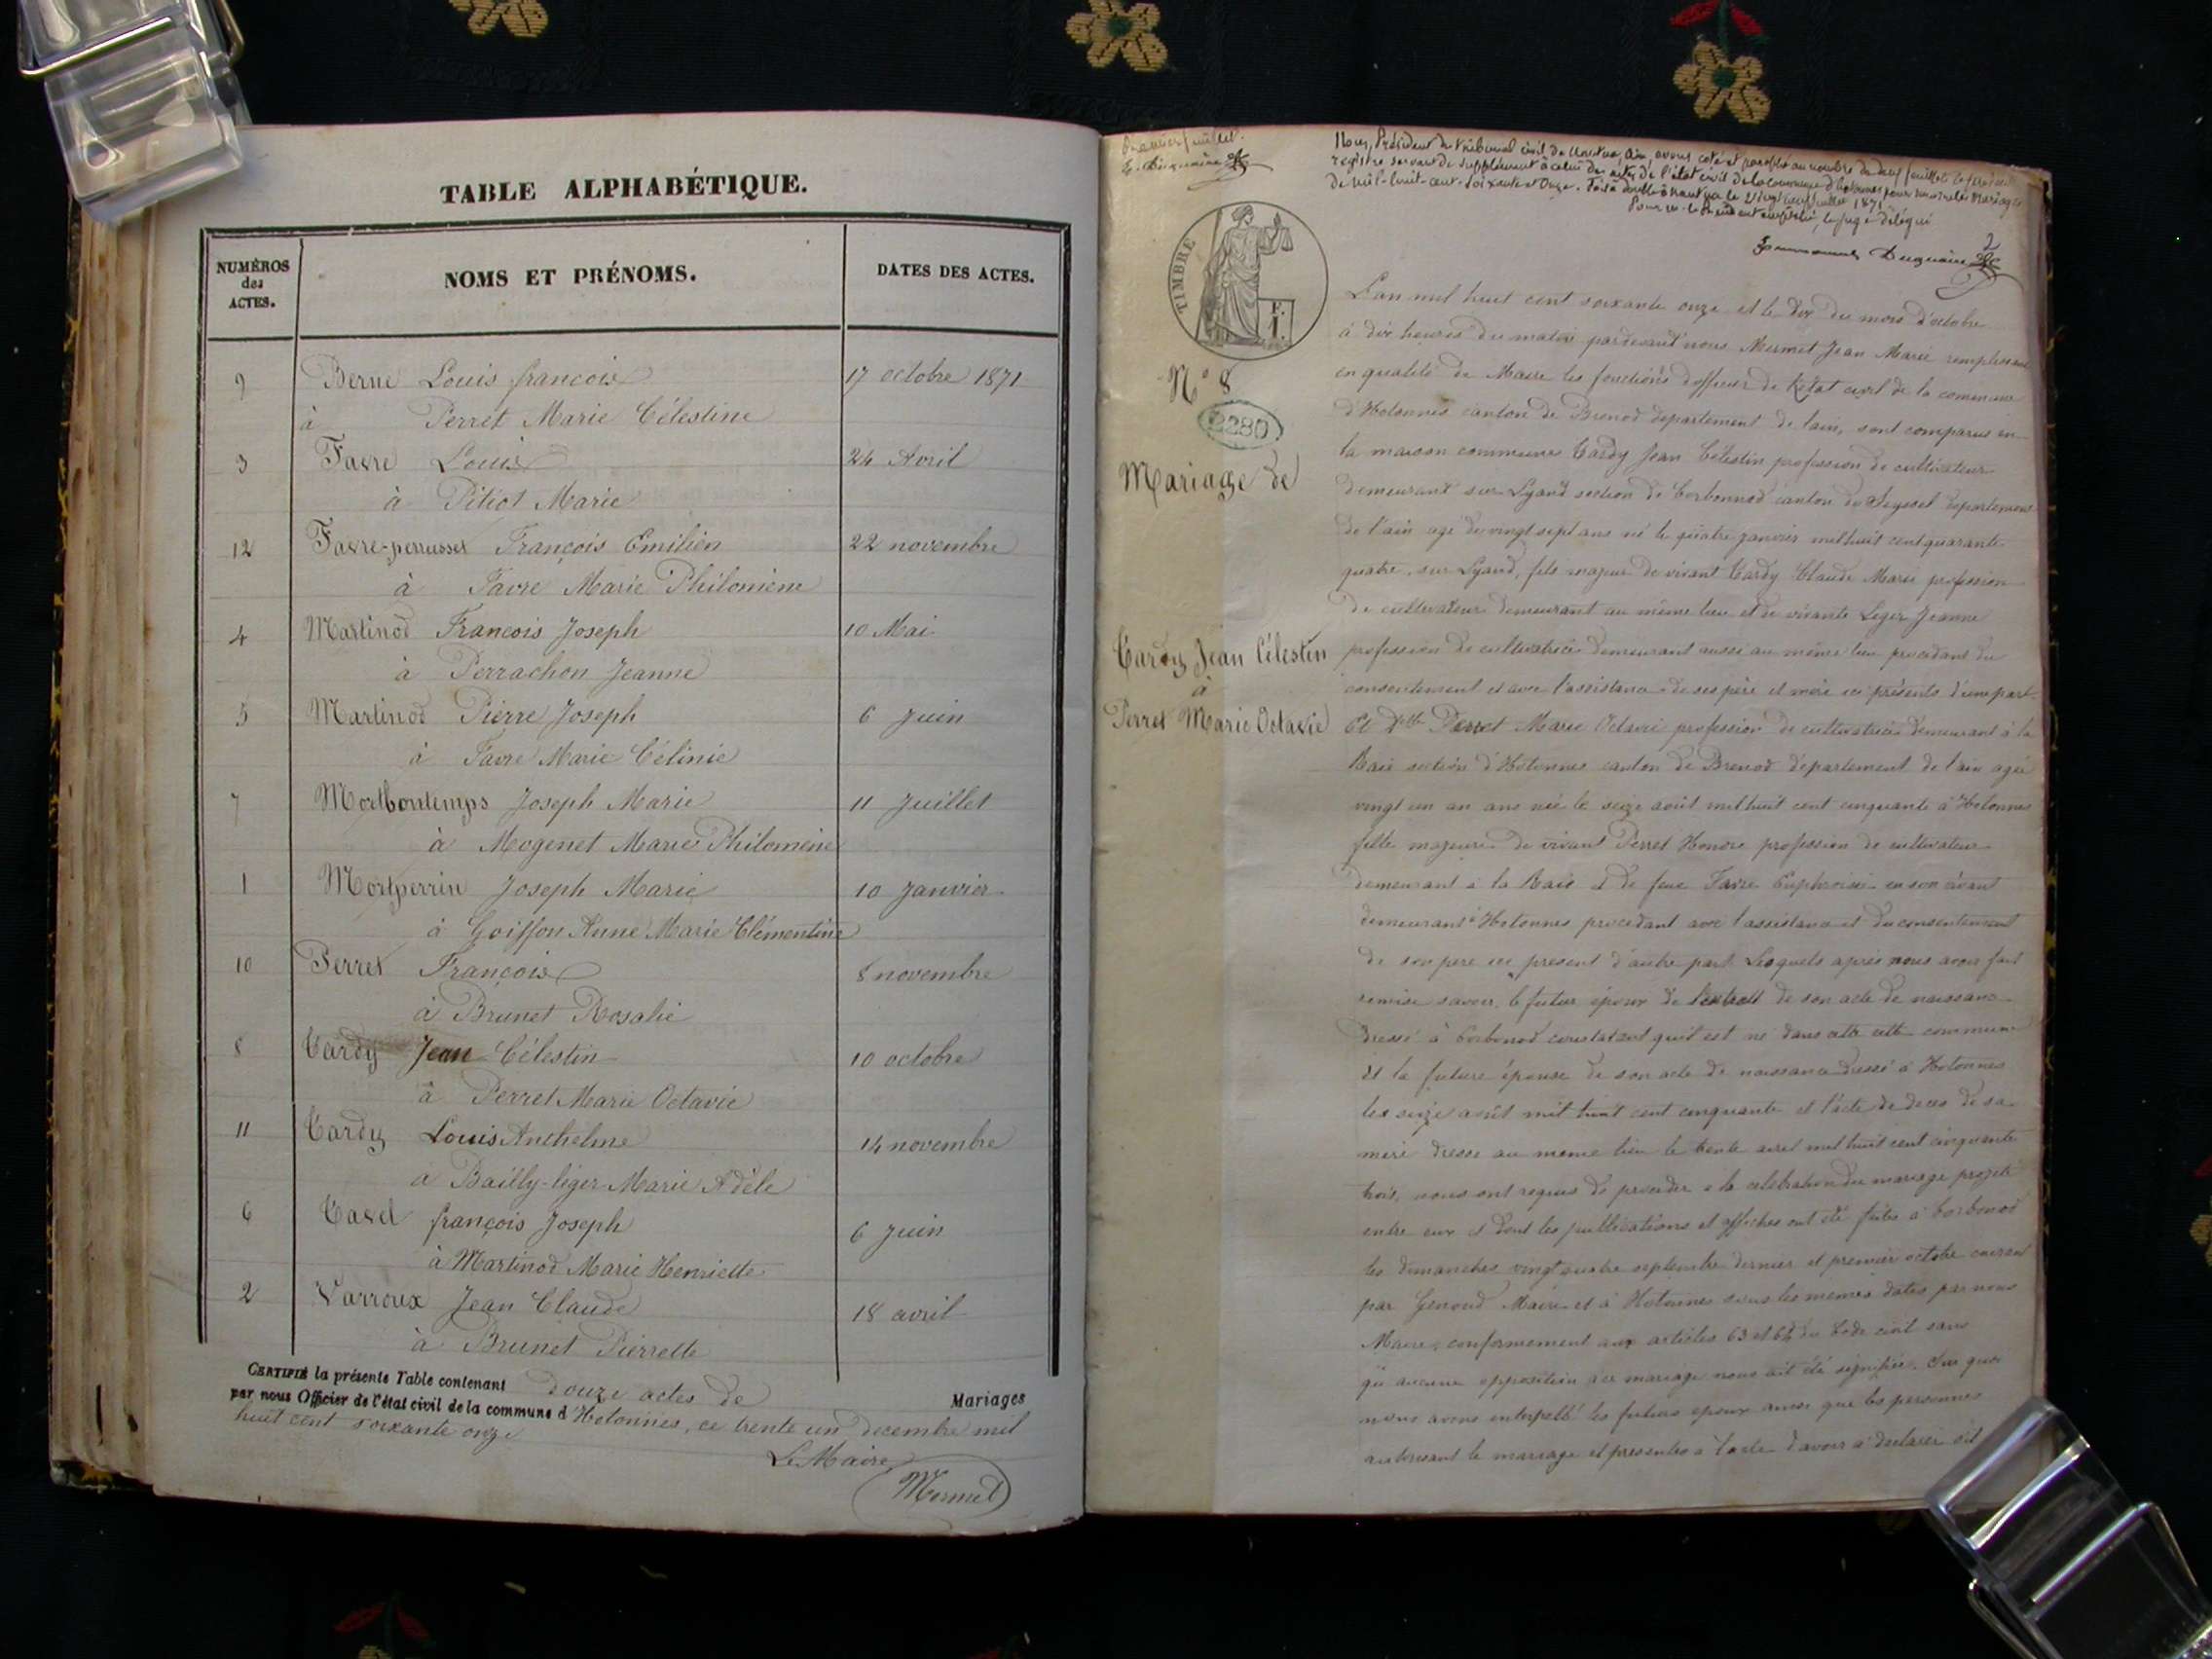 TABLE ALPHABÉTIQUE.
NUMÉROS des ACTES.
NOMS ET PRÉNOMS.
DATES DES ACTES.
9 Berne Louis françois 17 octobre 1871
à Perret Marie Célestine
3 Favre Louis 24 Avril
à Pitiot Marie
12 Favre-perrusset François Emilien 22 novembre
à Favre Marie Philomène
4 Martinod François Joseph 10 Mai
à Perrachon Jeanne
5 Martinod Pierre Joseph 6 Juin
à Favre Marie Célinie
7 Joseph Marie 11 Juillet
à Mogenet Marie Philomène
1 Joseph Marie 10 Janvier
à Goiffon Anne Marie Clémentine
10 Perret François 8 novembre
à Brunet Rosalie
8 Tardy Jean Célestin 10 octobre
à Perret Marie Octavie
11 Tardy Louis Anthelme 14 novembre
à Bailly-léger Marie Adèle
6 Tavel françois Joseph 6 Juin
à Martinod Marie Henriette
2 Varroux Jean Claude 18 avril
à Brunet Pierrette
CERTIFIÉ la présente Table contenant douze actes de Mariages
par nous Officier de l'état civil de la commune d'Hotonnes, ce trente un decembre mil
huit cent soixante onze
Le Maire
Mermet
Premier feuillet.
Nous, Président du tribunal civil de Nantua, Ain, avons coté et paraphé au nombre de
registre servant de supplément à celui des actes de l'état civil de la commune d'hotonnes pour Mariages
de mil-huit-cent-soixante et Onze. Fait à double à Nantua le juillet 1871
Pour m. le Président empêché, le juge délégué
TIMBRE
F.
1.
N° 8
2280
Mariage de
Tardy Jean Célestin
à
Perret Marie Octavie
L'an mil huit cent soixante onze et le dix du mois d'octobre
à dix heures du matin pardevant nous Mermet Jean Marie remplissant
en qualité de Maire les fonctions d'officier de l'état civil de la commune
d'Hotonnes canton de Brenod departement de lain, sont comparus en
la maison commune Tardy Jean Célestin profession de cultivateur
demeurant sur Lyand section de Corbonnod canton de Seyssel departement
de l'ain agé de vingt sept ans né le quatre janvier mil huit cent quarante
quatre, sur Lyand, fils majeur de vivant Tardy Claude Marie profession
de cultivateur demeurant au même lieu et de vivante Leger Jeanne
profession de cultivatrice demeurant aussi au même lieu procedant du
consentement et avec l'assistance de ses père et mère ici présents d'une part
Et Dlle Perret Marie Octavie profession de cultivatrice demeurant à la
section d'Hotonnes canton de Brenod département de l'ain agée
vingt un an ans née le seize août mil huit cent cinquante à Hotonnes
fille majeure de vivant Perret Honoré profession de cultivateur
demeurant à la et de feue Favre en son vivant
demeurant à Hotonnes procedant avec l'assistance et du consentement
de son père ici présent d'autre part. Lesquels après nous avoir fait
remise savoir, le futur époux de l'extrait de son acte de naissance
dressé à Corbonod constatant qu'il est né dans cette commune
et la future épouse de son acte de naissance dressé à Hotonnes
les seize août mil huit cent cinquante et l'acte de deces de sa
mère dressé au même lieu le trente avril mil huit cent cinquante
trois, nous ont requis de proceder à la celebration du mariage projeté
entre eux et dont les publications et affiches ont été faites à Corbonod
les dimanches vingt quatre septembre dernier et premier octobre courant
par Genoud Maire et à Hotonnes sous les mêmes dates par nous
Maire, conformement aux articles 63 et 64 du Code civil sans
qu'aucune opposition à ce mariage nous ait été signifiée. Sur quoi
nous avons interpellé les futurs époux ainsi que les personnes
autorisant le mariage et présentes à l'acte d'avoir à declarer s'il